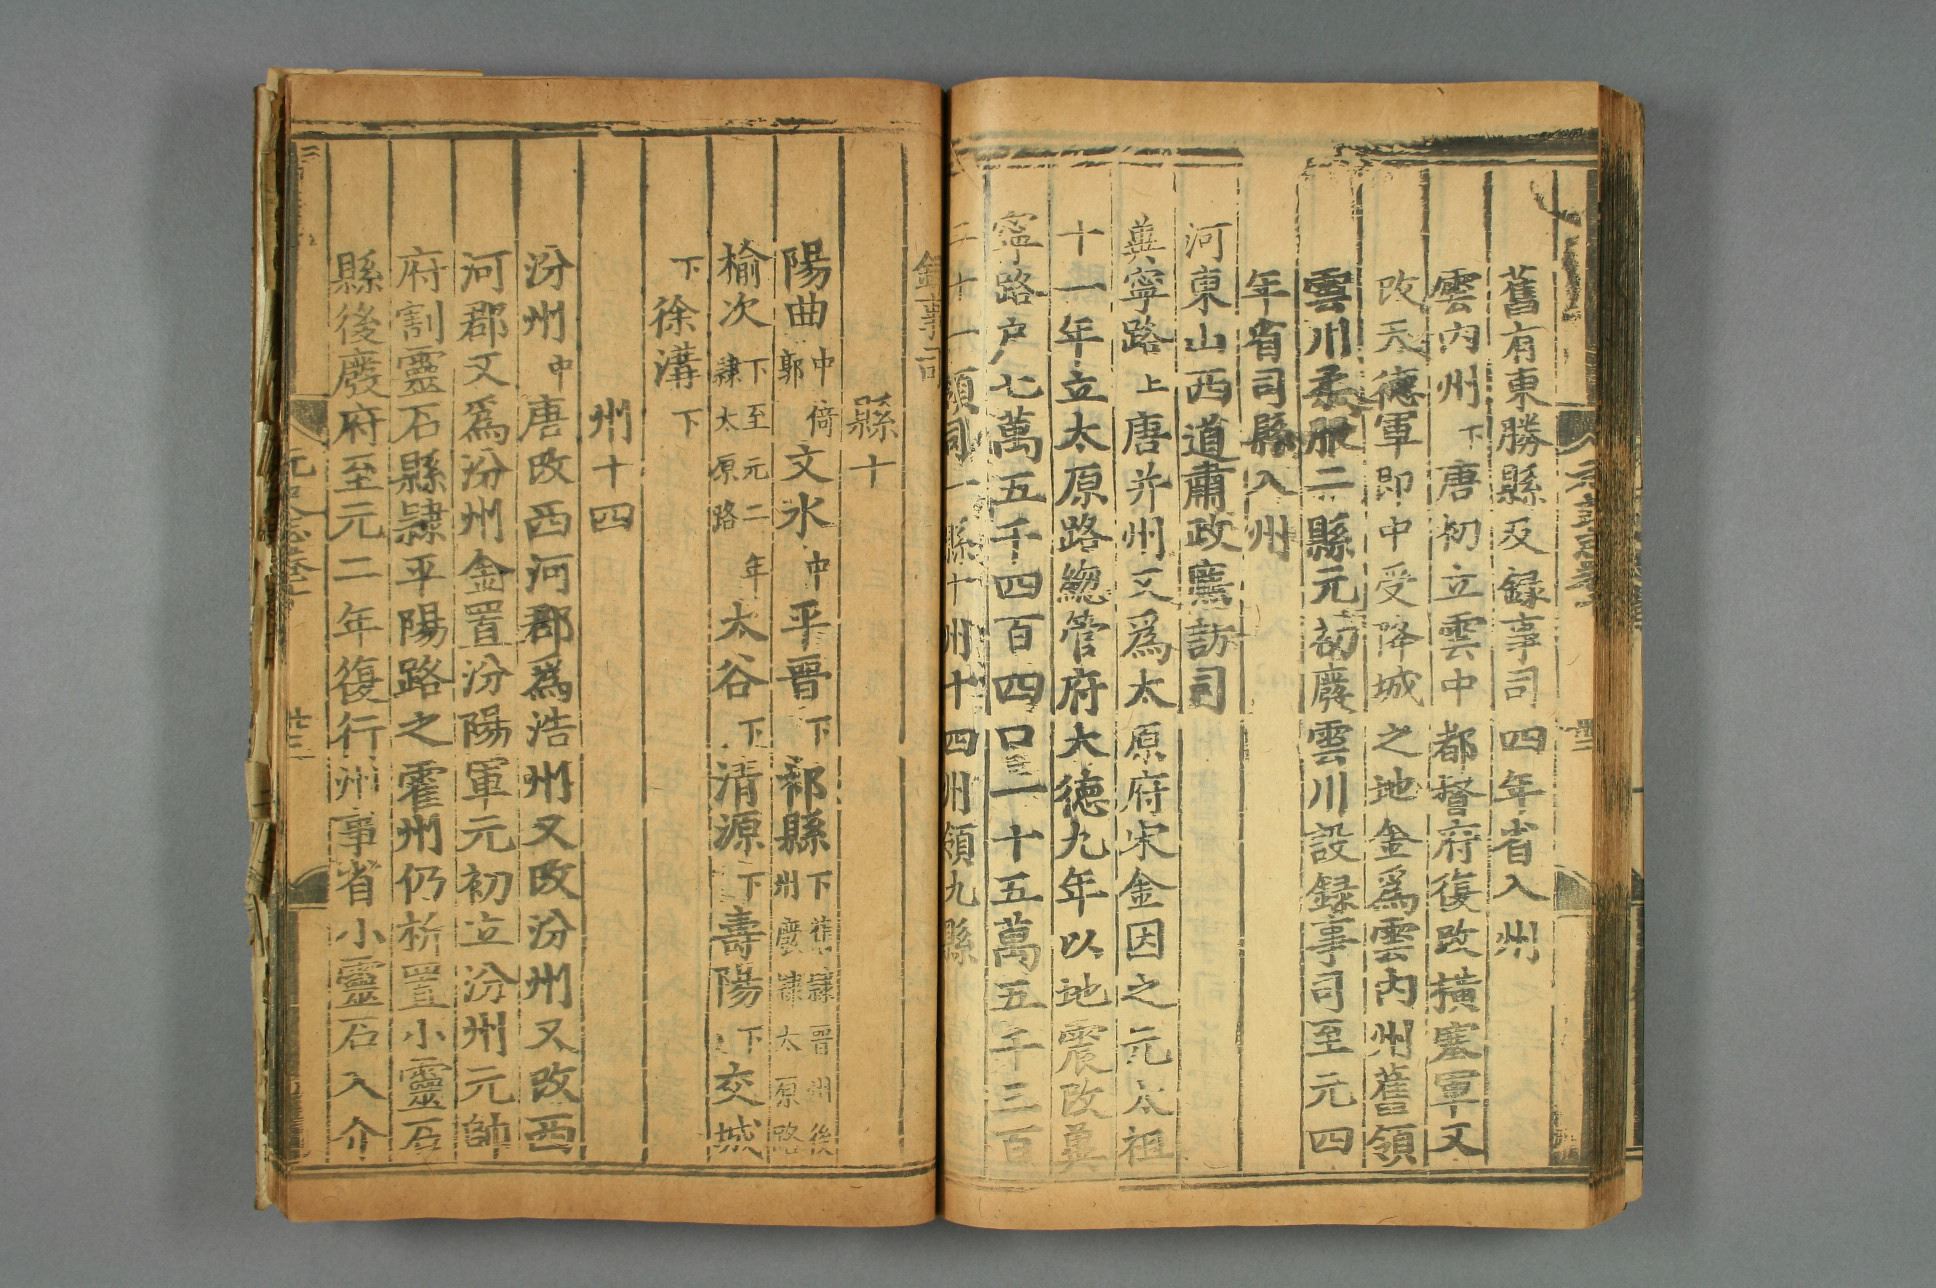 舊有東勝縣及錄事司四年省入州
雲內州下唐初立雲中都督府復改橫塞軍又
改天德軍即中受降城之地金爲雲內州舊領
雲川柔服二縣元初廢雲川設錄事司至元四
年省司縣入州
河東山西道肅政廉訪司
冀寧路上唐并州又爲太原府宋金因之元太祖
十一年立太原路總管府大德九年以地震改冀
寧路户七萬五千四百四口一十五萬五千三百
二十一領司一縣十州十四州領九縣
錄事司
縣十
陽曲中倚郭文水中平晉下祁縣下舊隸晉州後州廢隸太原路
榆次下至元二年隸太原路太谷下清源下壽陽下交城
下徐溝下
州十四
汾州中唐改西河郡爲浩州又改汾州又改西
河郡又爲汾州金置汾陽軍元初立汾州元帥
府割靈石縣隸平陽路之霍州仍析置小靈石
縣後廢府至元二年復行州事省小靈石入介
廿三